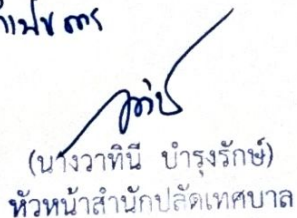 (นางวาทินี บำรุงรักษ์)
หัวหน้าสำนักปลัดเทศบาล